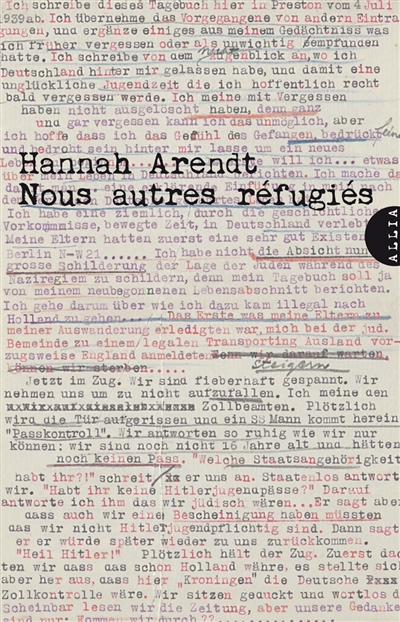 Ich schreibe dieses Tagebuch hier in Preston vom 4 Juli
1939ab. Ich übernehme das Vorgegangene von andern Eintra
gungen, und ergänze einiges aus meinem Gedächtniss was
ich früher vergessen oder als unwichtig empfunden
hatte. Ich schreibe von dem Augenblick an, wo ich
Deutschland hinter mir gelassen habe, und damit eine
unglückliche Jugendzeit die ich hoffentlich recht
bald vergessen werde. Ich meine mit Vergessen
haben nicht ausgelöscht haben, denn ganz
und gar vergessen kann ich das unmöglich, aber
ich hoffe dass ich das Gefühl des Gefangen, bedrückt
und bedroht sein hinter mir lasse um ein neues
will ich... etwas
Hannah Arendt
Nous autres réfugiés
ALLIA
Ich habe eine ziemlich, durch die geschichtliche
Vorkommnisse, bewegte Zeit, in Deutschland verlebt
Meine Eltern hatten zuerst eine sehr gut Existen
Berlin N-W21...... Ich habe nicht die Absicht nun
grosse Schilderung der Lage der Juden während des
Naziregiem zu schildern, denn mein Tagebuch soll ja
von meinem neubegonnenen Lebensabschnitt berichten.
Ich gehe darum über wie ich dazu kam illegal nach
Holland zu gehen.... Das Erste was meine Eltern zu
meiner Auswanderung erledigten war, mich bei der jud.
Gemeinde zu einem legalen Transporting Ausland vor-
zugsweise England anmeldeten. Wenn wir darauf warten,
können wir sterben.....
steigern
Jetzt im Zug. Wir sind fieberhaft gespannt. Wir
nehmen uns um zu nicht aufzufallen. Ich meine den
Zollbeamten. Plötzlich
wird die Tür aufgerissen und ein SS Mann kommt herein
"Passkontroll". Wir antworten so ruhig wie wir nur
können; wir sind noch nicht 16 Jahre alt und hätten
noch keinen Pass. "Welche Staatsangehörigkeit
habt ihr?!" schreit er uns an. Staatenlos antwort
wir. "Habt ihr keine Hitlerjugenpässe?" Darauf
antworte ich ihm das wir jüdisch wären...Er sagt aber
dass auch wir eine Bescheinigung haben müssten
das wir nicht Hitlerjugendpflichtig sind. Dann sagt
er er würde später wieder zu uns zurückkommen.
"Heil Hitler!" Plötzlich hält der Zug. Zuerst dac
ten wir dass das schon Holland währe, es stellte sic
aber her aus, dass hier "Kroningen" die Deutsche
Zollkontrolle wäre. Wir sitzen geduckt und wortlos d
Scheinbar lesen wir die Zeitung, aber unsere Gedanke
sind nur: Kommen wir durch ??